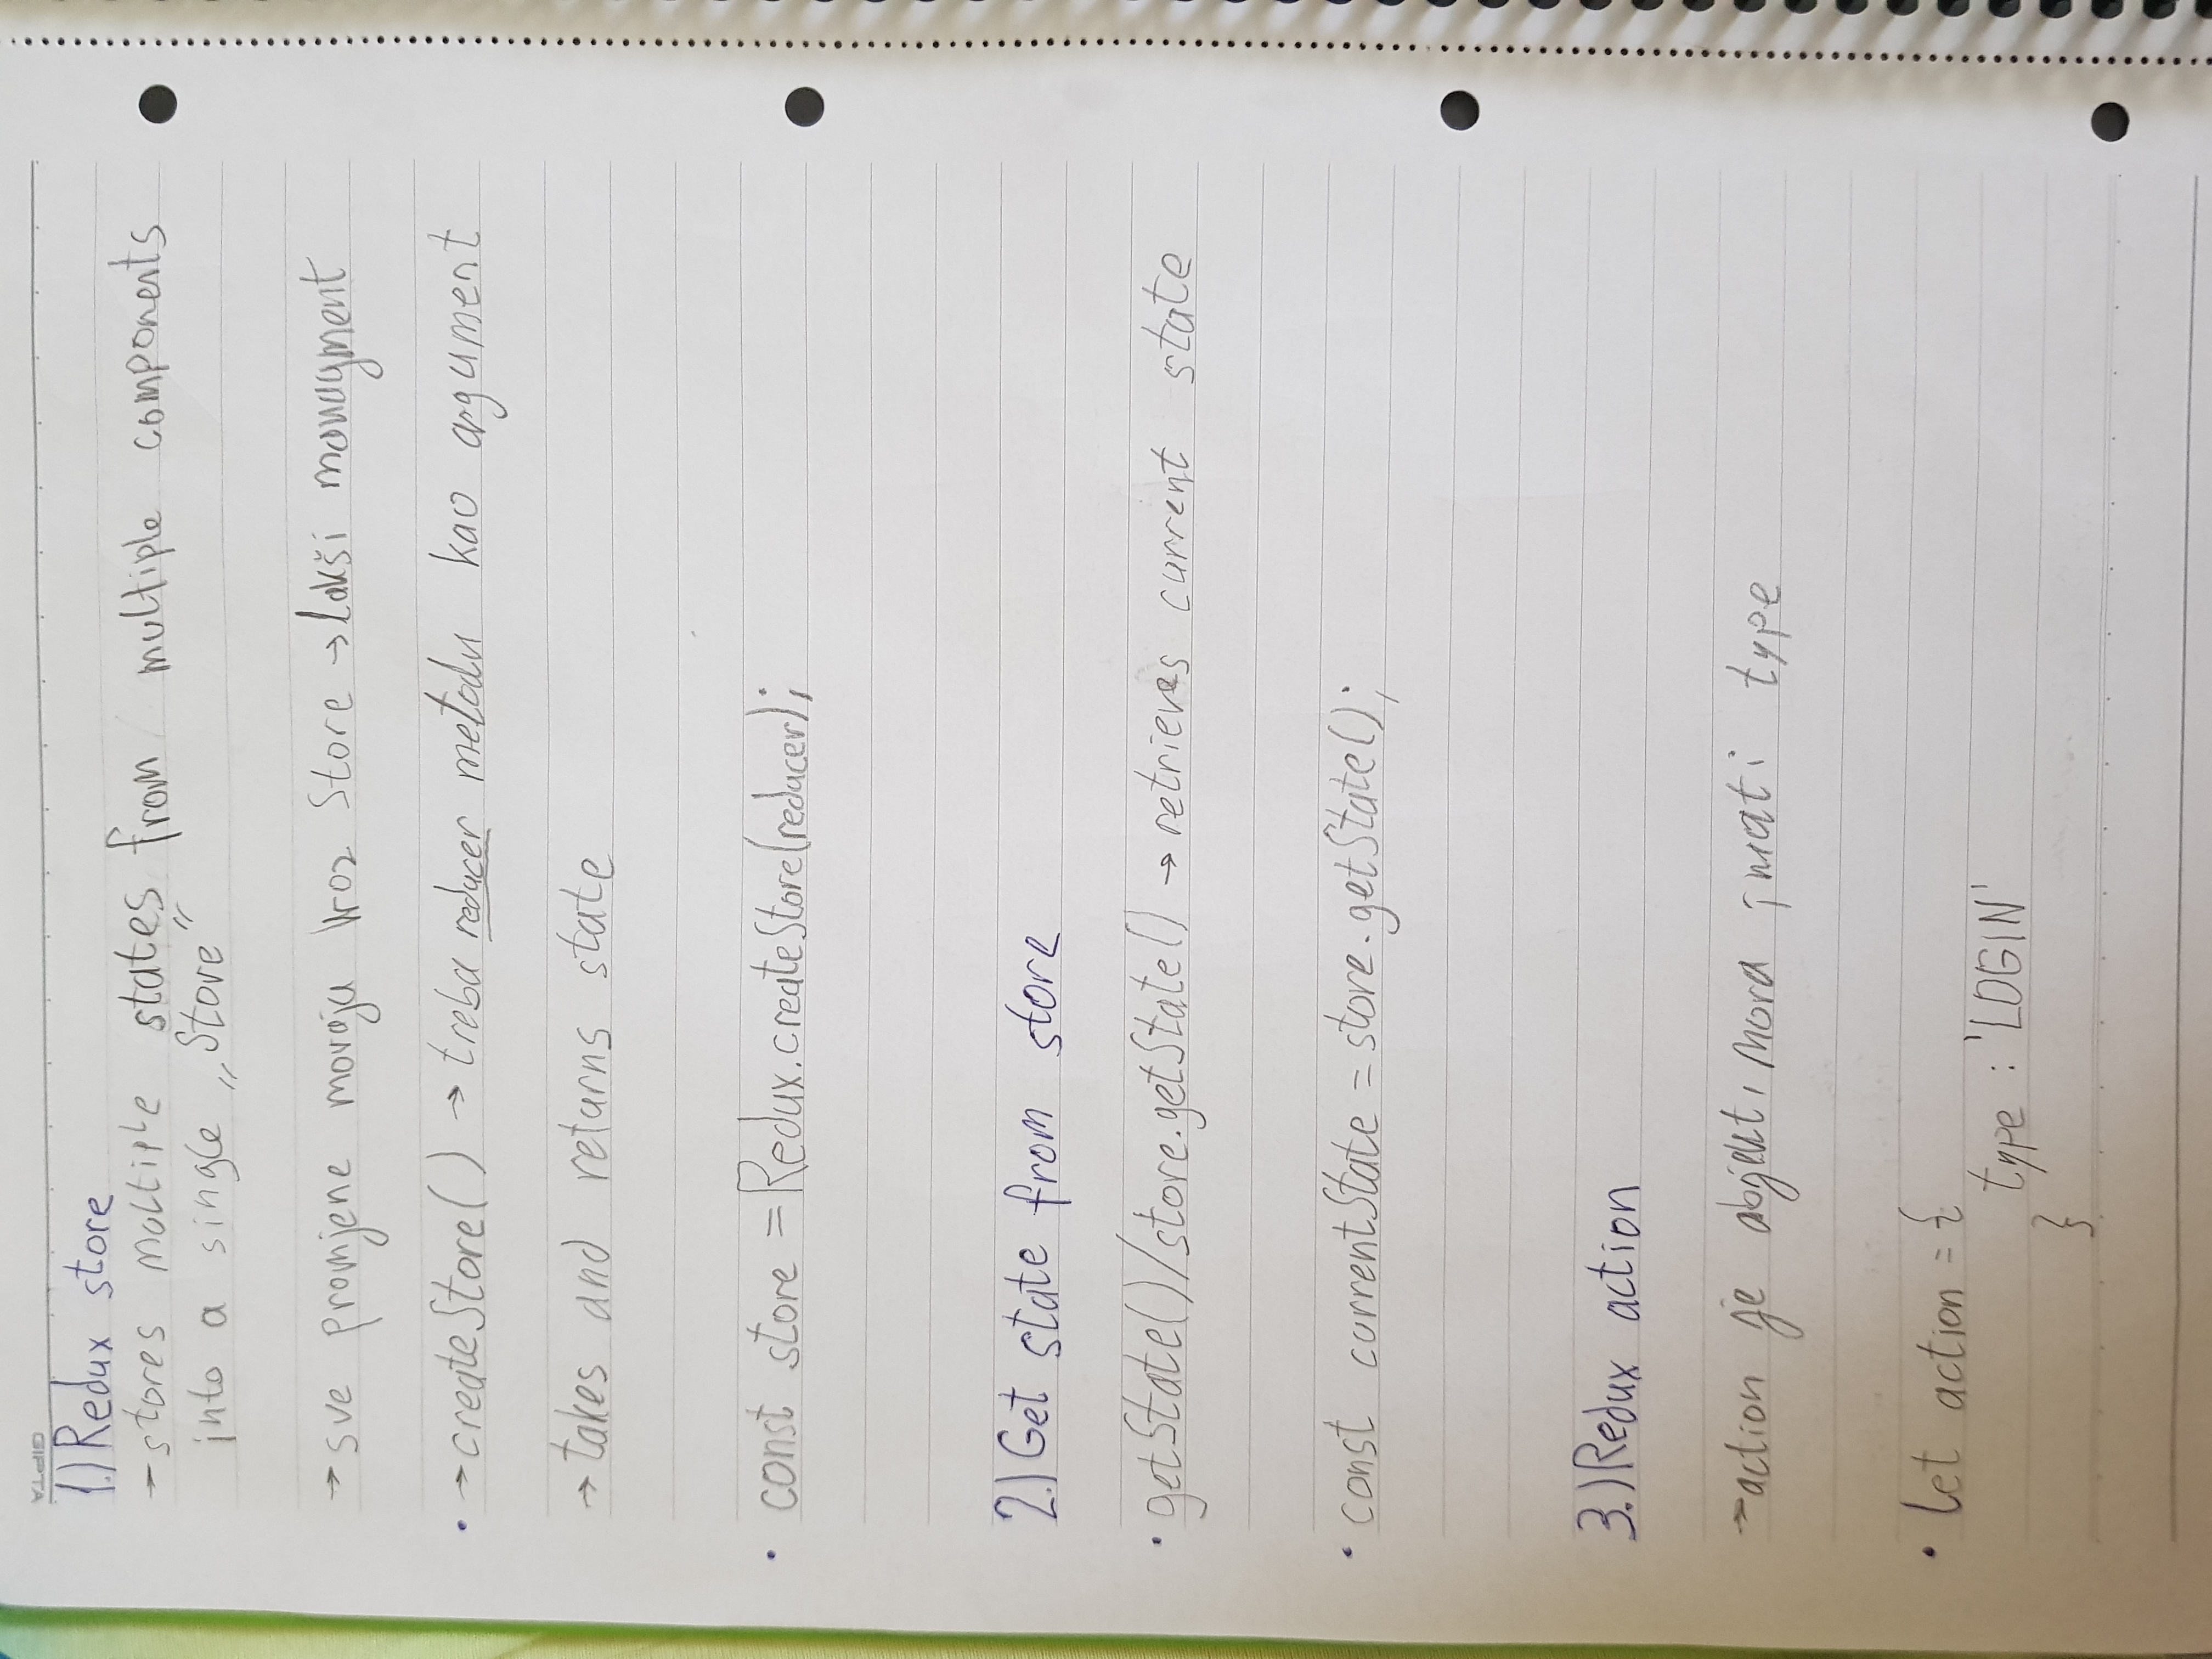 GIPTA
1.) Redux store
→ stores multiple states from multiple components
into a single „Store”
→ sve promjene moraju kroz Store → lakši managment
• → createStore() → treba reducer metodu kao argument
→ takes and returns state
• const store = Redux.createStore(reducer);
2.) Get state from store
• getState()/store.getState() → retrieves current state
• const currentState = store.getState();
3.) Redux action
→ action je objekt, mora imati type
• let action = {
type : 'LOGIN'
}